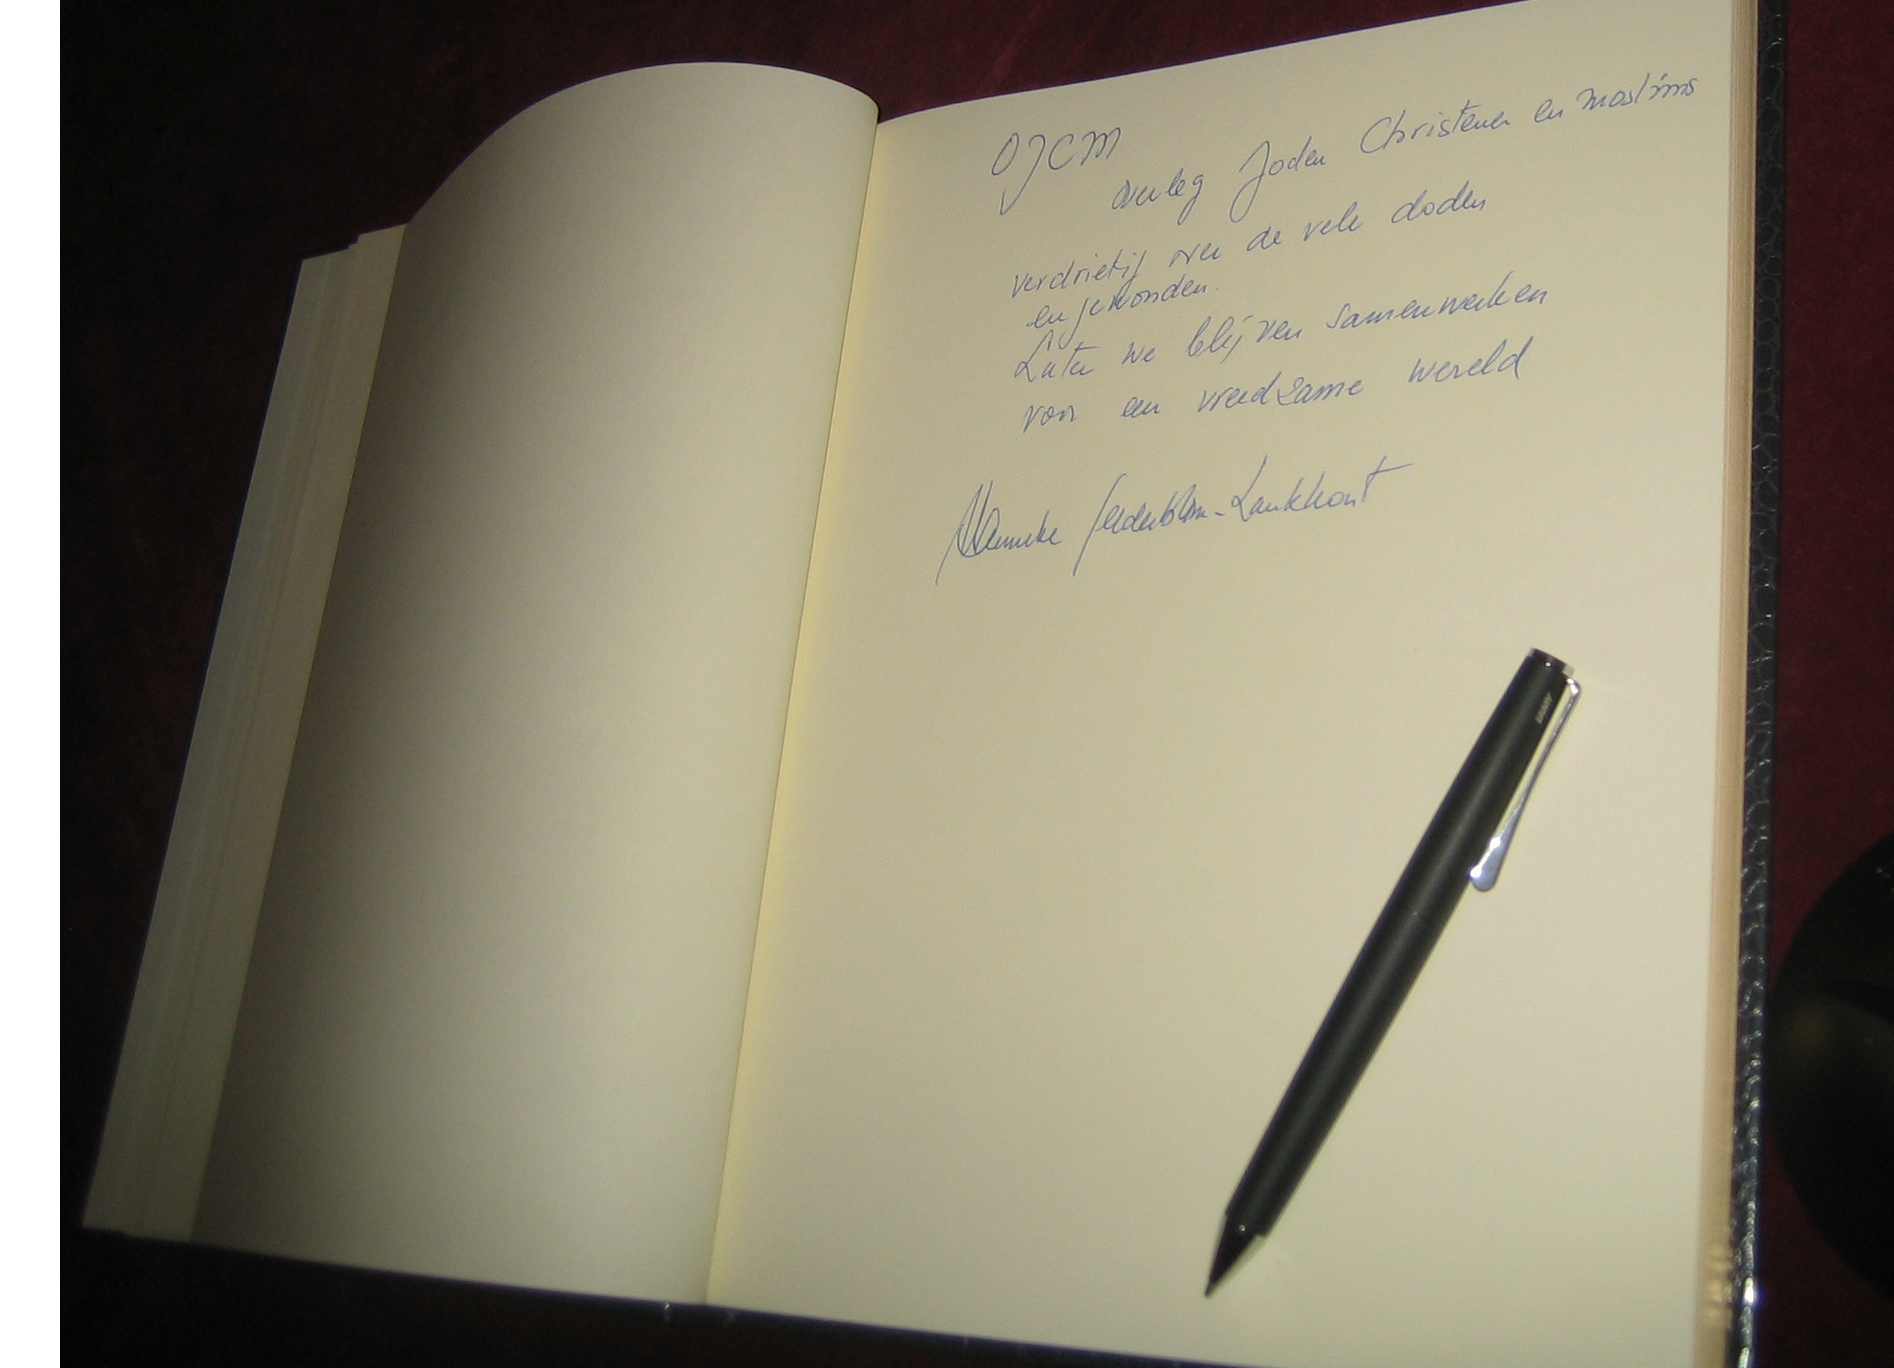 OJCM
overleg Joden Christenen en moslims
verdrietig over de vele doden
en gewonden.
Laten we blijven samenwerken
voor een vreedzame wereld
Lankhout
LAMY